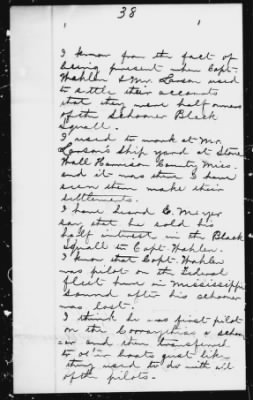 38
I know from the fact of
being present when Capt.
Wahlen & Mr. Lawson used
to settle their accounts
that they were half owners
of the Schooner Black
Squall.
I used to work at Mr.
Lawson's Ship yard at Stone
Wall Harrison County Miss.
and it was there I have
seen them make their
settlements.
I have heard C. Meyer
say that he sold his
half interest in the Black
Squall to Capt. Wahlen.
I know that Capt. Wahlen
was pilot on the Federal
fleet here in Mississippi
sound after his schooner
was lost.
I think he was first pilot
on the a schoon
er and then transferred
to other boats just like
they used to do with all
of the pilots.